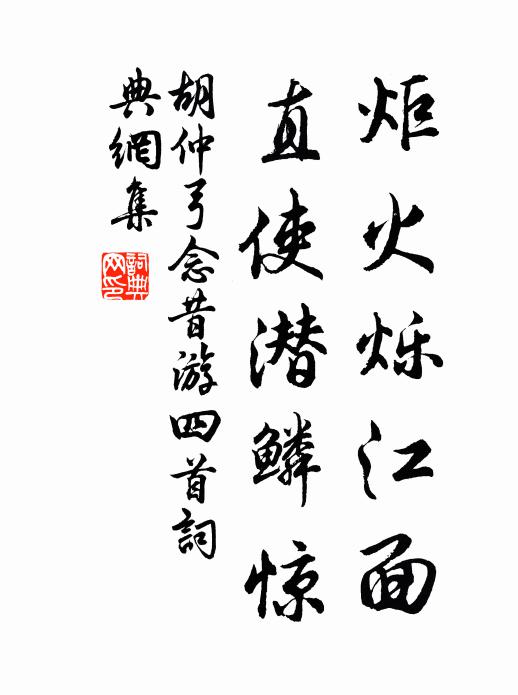 炬火烁江面
直使潜鳞惊
胡仲弓念昔游四首詞
典網集
詞典网印